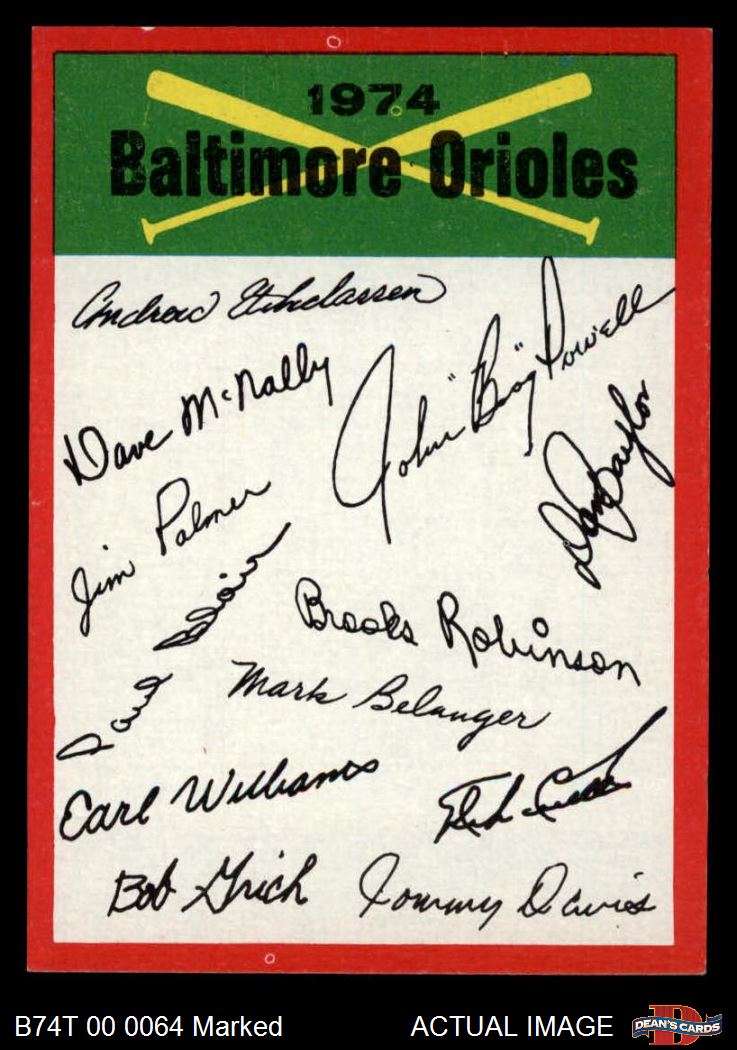 1974
Baltimore Orioles
Andrew Etchebarren
Dave McNally
John "Boog" Powell
Jim Palmer
Paul Blair
Brooks Robinson
Mark Belanger
Earl Williams
Bob Grich
Tommy Davis
B74T 00 0064 Marked
ACTUAL IMAGE
DEAN'S CARDS